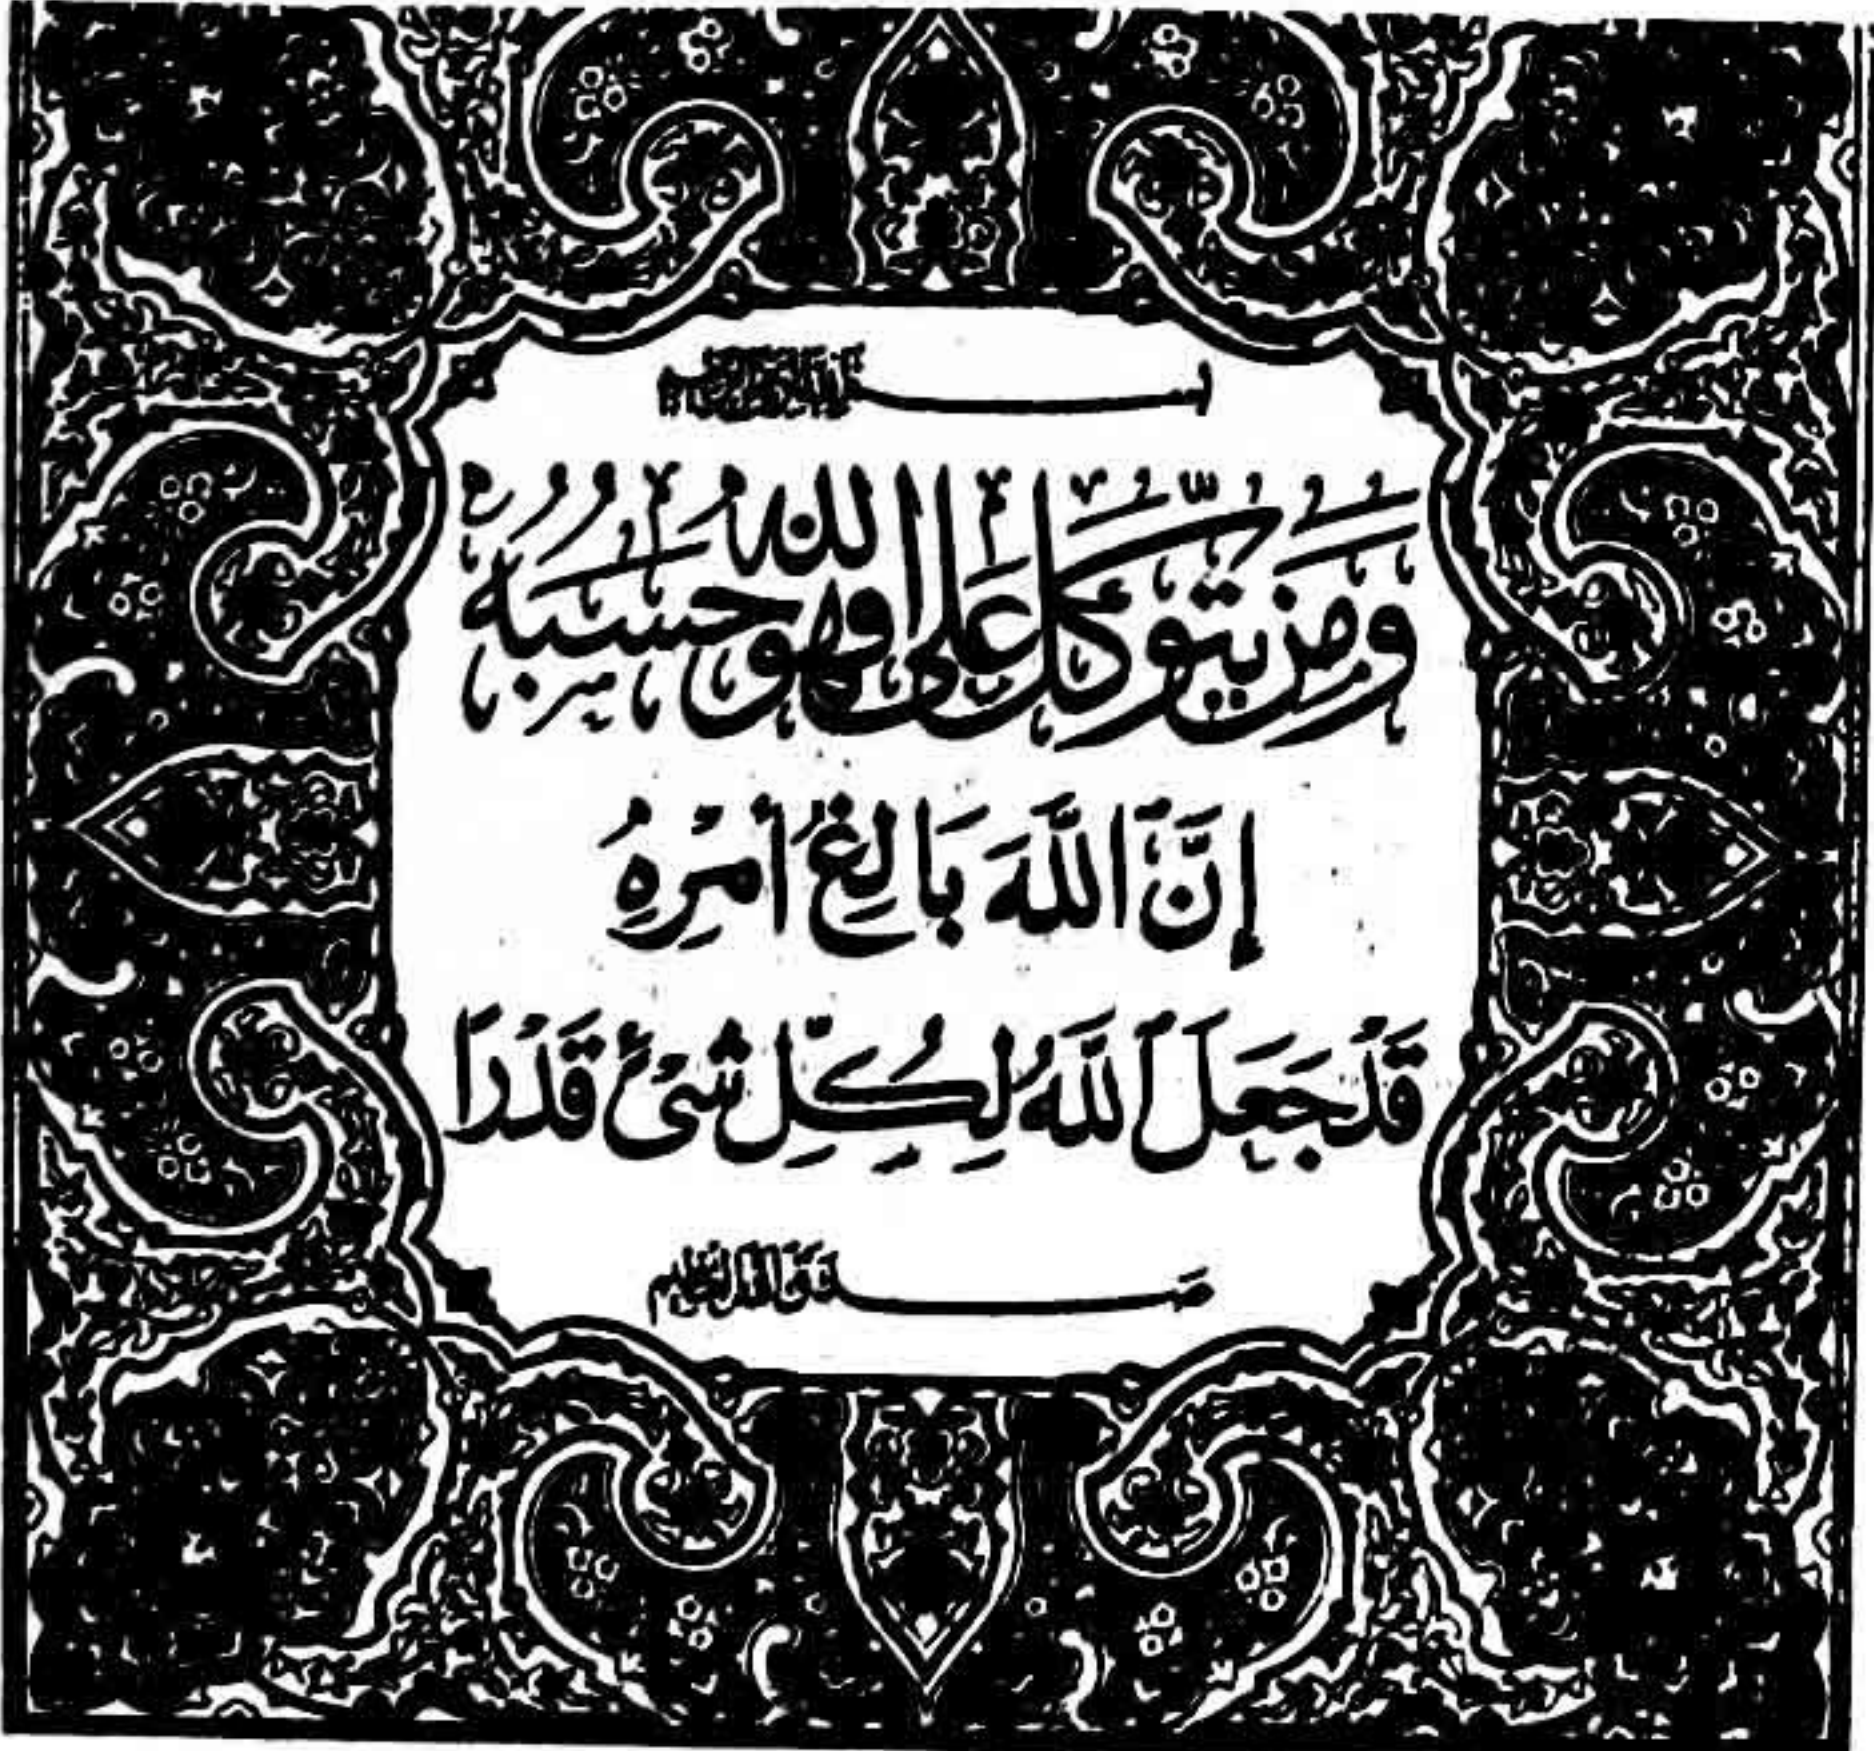 بسم الله الرحمن الرحيم
وَمَن يَتَوَكَّلْ عَلَى اللهِ فَهُوَ حَسْبُهُ
إِنَّ ٱللَّهَ بَالِغُ أَمْرِهِ
قَدْ جَعَلَ ٱللَّهُ لِكُلِّ شَىْءٍ قَدْرًا
صدق الله العظيم